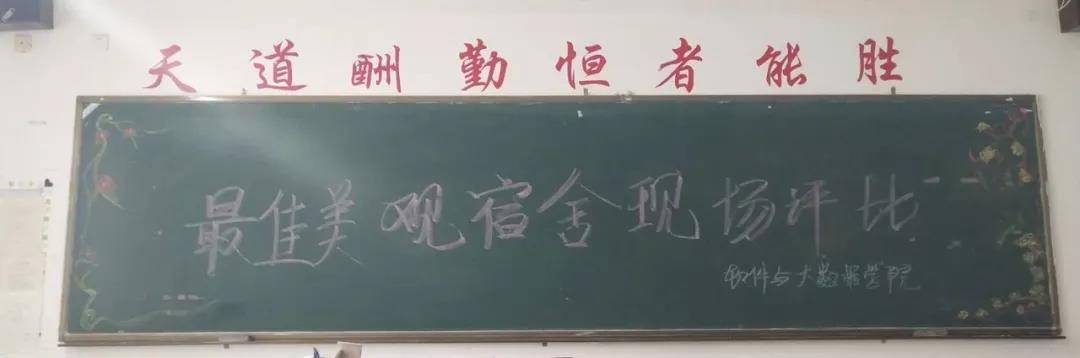 天道酬勤恒者能胜
最佳美观宿舍现场评比
软件与大数据学院